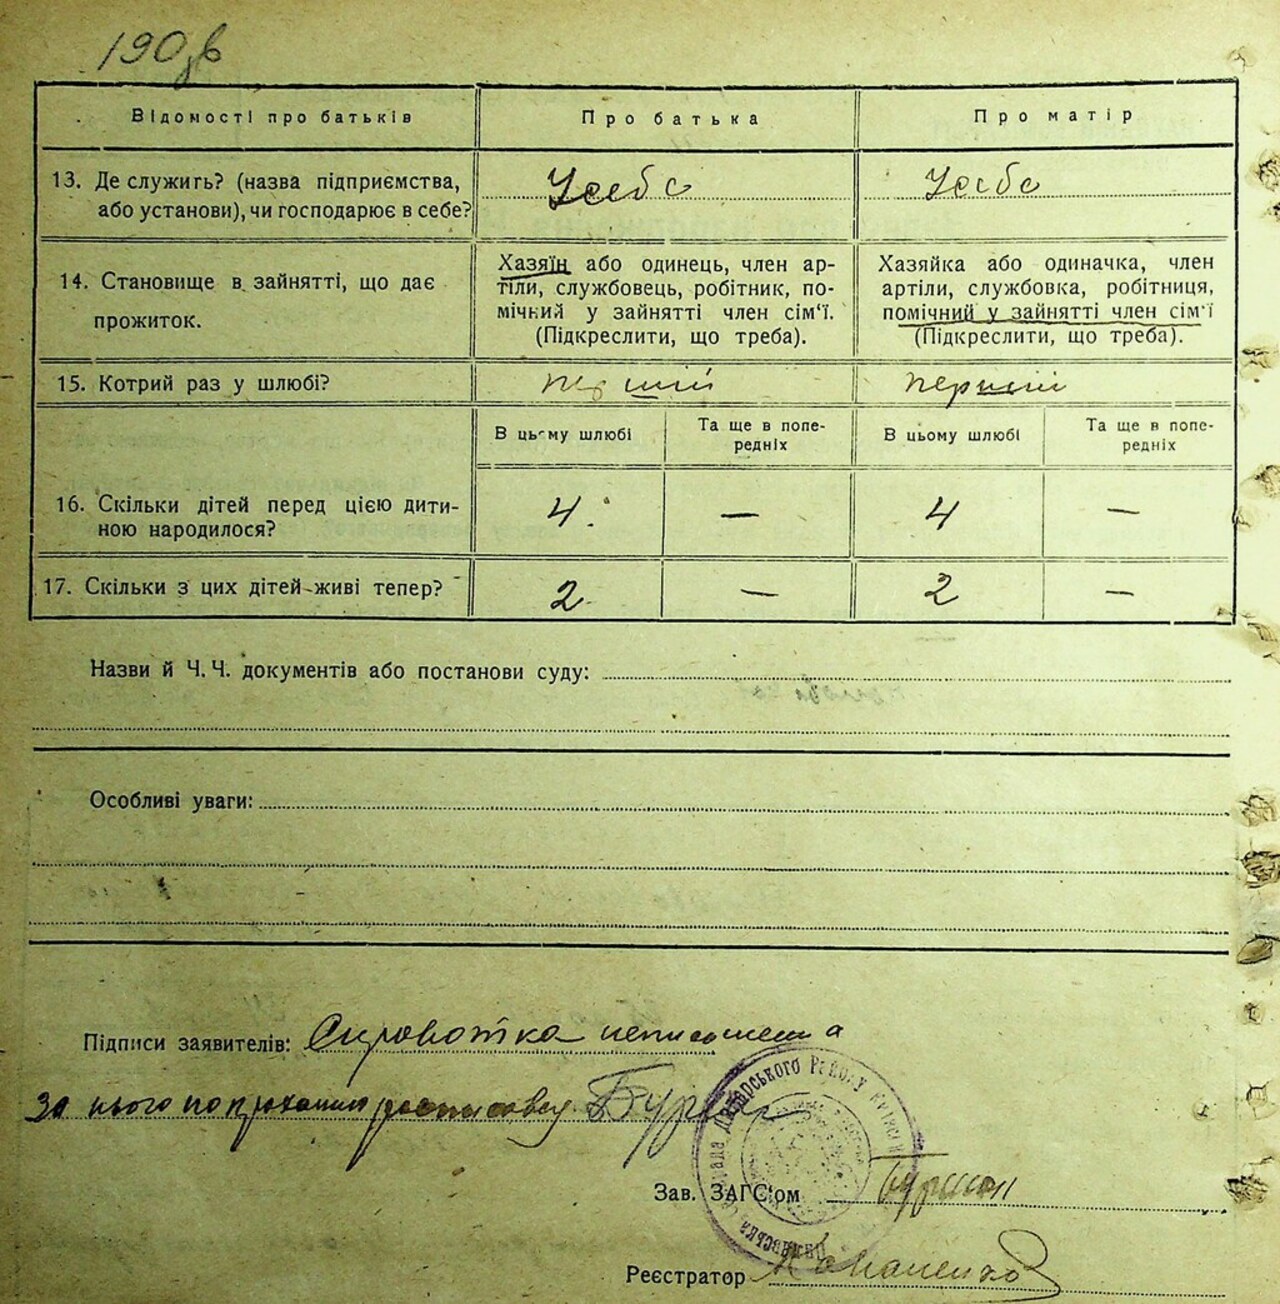 190 зв
Відомості про батьків
Про батька
Про матір
13. Де служить? (назва підприємства,
або установи), чи господарює в себе?
У себе
У себе
14. Становище в зайнятті, що дає
прожиток.
Хазяїн або одинець, член ар-
тіли, службовець, робітник, по-
мічний у зайнятті член сім'ї.
(Підкреслити, що треба).
Хазяйка або одиначка, член
артіли, службовка, робітниця,
помічний у зайнятті член сім'ї
(Підкреслити, що треба).
15. Котрий раз у шлюбі?
перший
перший
В цьому шлюбі
Та ще в попе-
редніх
В цьому шлюбі
Та ще в попе-
редніх
16. Скільки дітей перед цією дити-
ною народилося?
4
—
4
—
17. Скільки з цих дітей живі тепер?
2
—
2
—
Назви й Ч. Ч. документів або постанови суду:
Особливі уваги:
Підписи заявителів: Сировотка неписьмена
за нього по проханню росписовсь
Зав. ЗАГС'ом
Реєстратор